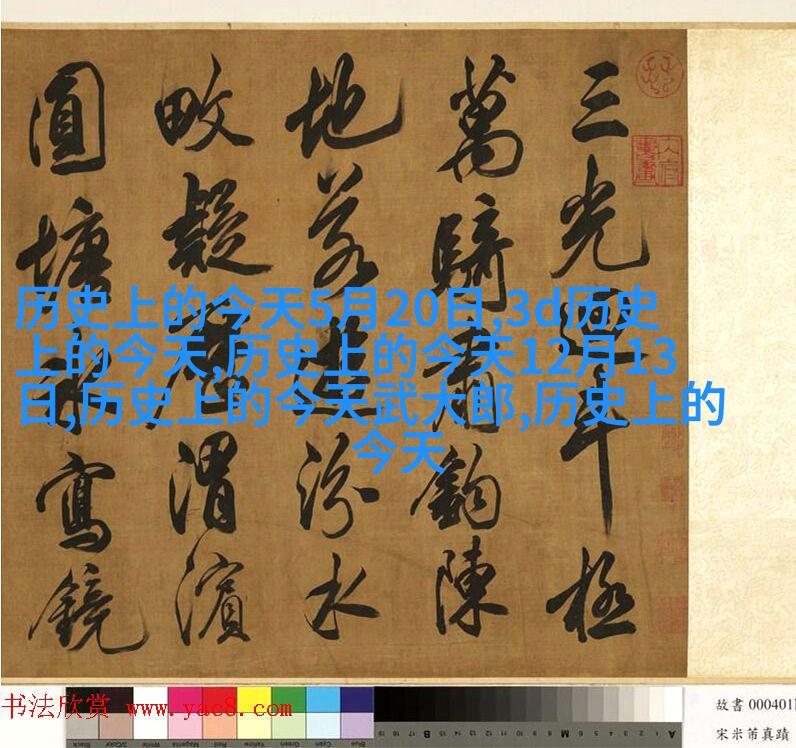 三光斗極
萬騎肅鉤陳
地若汾水
畋疑渭濱
圓塘寫鏡
历史上的今天5月20日,3d历史
上的今天,历史上的今天12月13
日,历史上的今天武大郎,历史上的
今天
书法欣赏 www.yac8.com
故書 000401
宋米芾真蹟